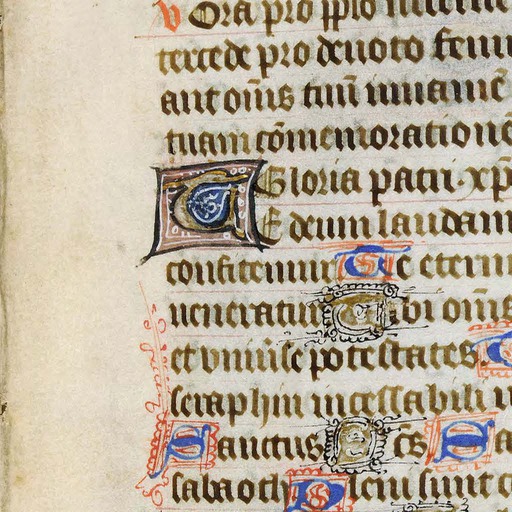 v Ora pro pp̄lo interue
tercede pro deuoto femi
ant om̄s tuū iuuamē
tuam cōmemorationē
Gloria patri. xp̄
TE deum laudam
confitemur Te etern
ueneratur Tibi om̄s
et vniuīse potestates
seraphin incessabili u
Sanctus Sc̄s D
sabaoth Pleni sunt c